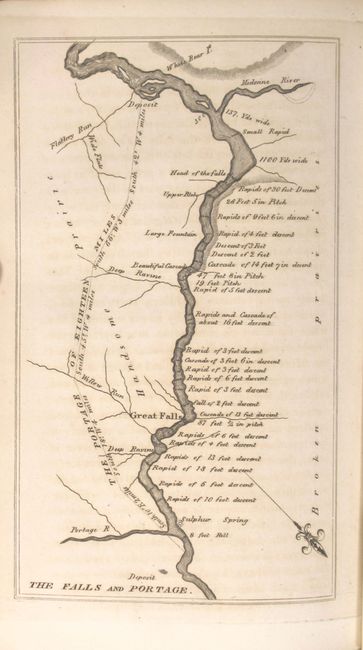 White Bear Is.
Medecine River
Deposit
137 Yds wide
Small Rapid
Flattery Run
1100 Yds wide
Head of the falls
Rapids of 30 feet Decent
Upper Pitch
26 Feet 5 in Pitch
Rapids of 9 feet 6 in decent
Large Fountain
Rapid of 4 feet decent
Descent of 3 Feet
Descent of 2 feet
Beautiful Cascade
Cascade of 14 feet 7 in decent
Deep Ravine
47 Feet 8 in Pitch
19 feet Pitch
Rapid of 5 feet descent
Rapids and Cascades of
about 16 feet descent
Prairie
Handsome
Broken prairies
THE PORTAGE OF EIGHTEEN MILES
South 42° W 4 miles
South 66° W 3 miles
South 45° W 4 miles
Rapid of 3 feet descent
Cascade of 3 feet 6 in descent
Rapid of 3 feet descent
Rapids of 6 feet descent
Rapid of 3 feet descent
Willow Run
Fall of 2 feet descent
Great Falls
Cascade of 13 feet descent
87 feet ¾ in pitch
Rapids of 6 feet descent
Rapids of 4 feet descent
Deep Ravine
Rapids of 13 feet descent
Rapid of 18 feet descent
Rapids of 6 feet descent
Rapids of 10 feet descent
Sulphur Spring
Portage R
8 feet Fall
Deposit
THE FALLS AND PORTAGE.